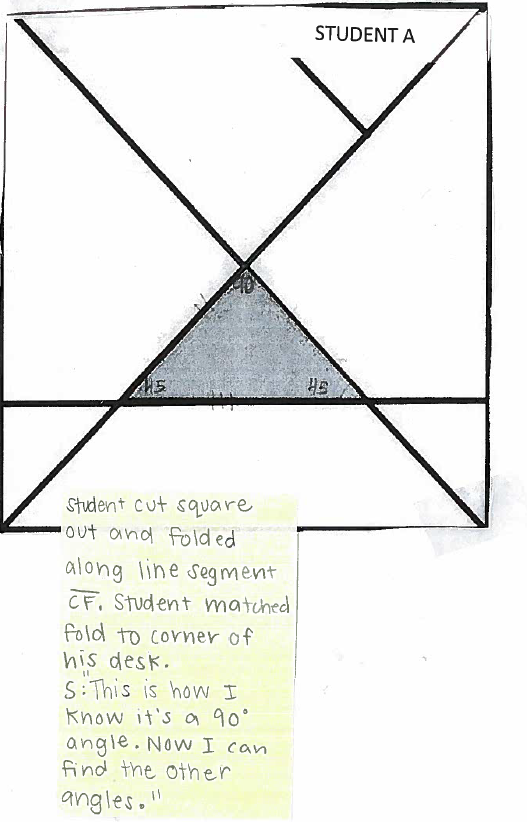 STUDENT A
90
45
45
Student cut square
out and folded
along line segment
CF. Student matched
fold to corner of
his desk.
S: "This is how I
know it's a 90°
angle. Now I can
find the other
angles."